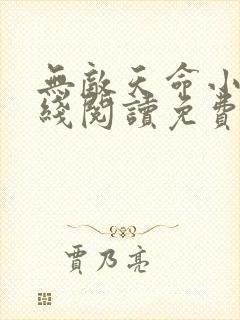 無敵天命小
綫閱讀免費
賈乃亮